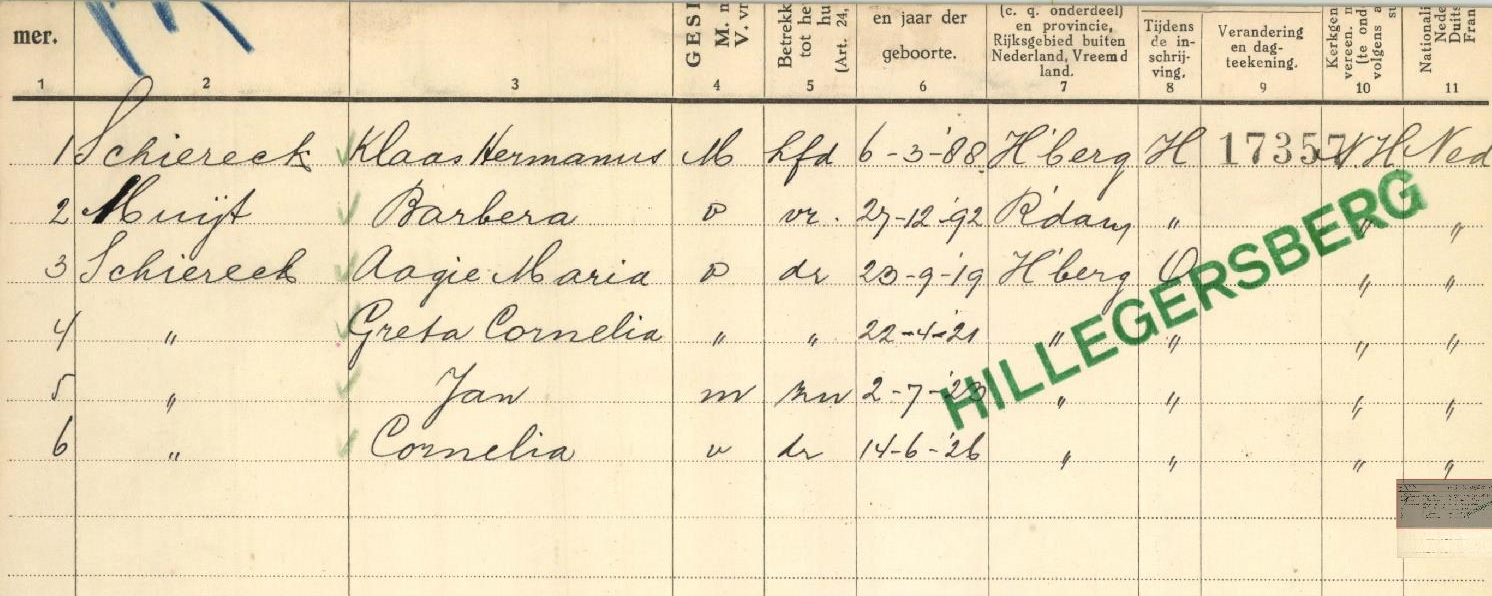 mer.
GESL
M. m
V. vr
Betrekk
tot he
hu
(Art. 24,
en jaar der
geboorte.
(c. q. onderdeel)
en provincie,
Rijksgebied buiten
Nederland, Vreemd
land.
Tijdens
de in-
schrij-
ving.
Verandering
en dag-
teekening.
Kerkgen
vereen. n
(te ond
volgens a
su
Nationali
Nede
Duits
Fran
1 2 3 4 5 6 7 8 9 10 11
1 Schiereck Klaas Hermanus M hfd 6-3-'88 H'berg H 17357 N.H Ned
2 Muijt Barbera v vr. 27-12-'92 R'dam " " "
3 Schiereck Aagje Maria v dr 23-9-'19 H'berg O " "
4 " Greta Cornelia " " 22-4-'21 " " " "
5 " Jan m zn 2-7-'23 " " " "
6 " Cornelia v dr 14-6-'26 " " " "
HILLEGERSBERG